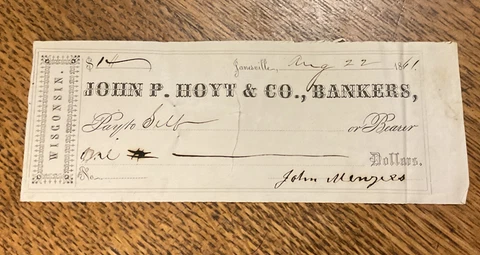 WISCONSIN.
$1 Janesville, Aug 22 1861.
JOHN P. HOYT & CO., BANKERS,
Pay to Self or Bearer
One Dollars.
No. John Menzies